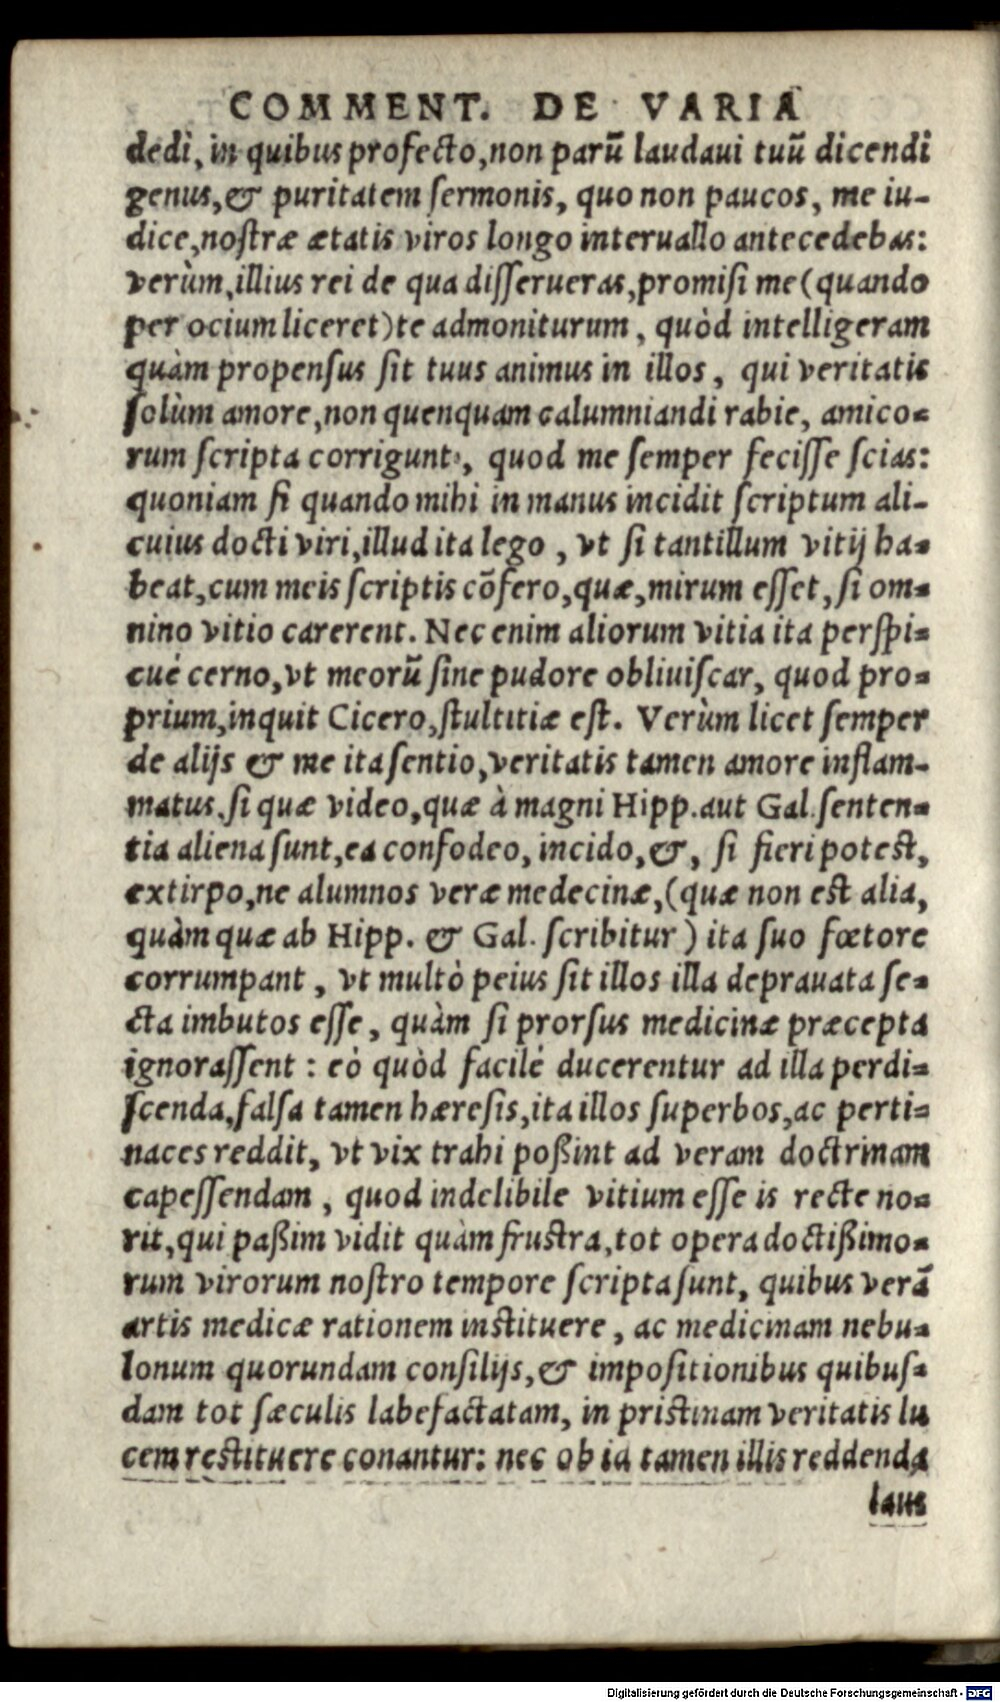 COMMENT. DE VARIA
dedi, in quibus profecto, non parū laudaui tuū dicendi
genus, & puritatem sermonis, quo non paucos, me iu-
dice, nostræ ætatis viros longo interuallo antecedebas:
verùm, illius rei de qua disserueras, promisi me (quando
per ocium liceret) te admoniturum, quòd intelligeram
quàm propensus sit tuus animus in illos, qui veritatis
solùm amore, non quenquam calumniandi rabie, amico-
rum scripta corrigunt, quod me semper fecisse scias:
quoniam si quando mihi in manus incidit scriptum ali-
cuius docti viri, illud ita lego, vt si tantillum vitij ha-
beat, cum meis scriptis cõfero, quæ, mirum esset, si om-
nino vitio carerent. Nec enim aliorum vitia ita perspi-
cuè cerno, vt meorū sine pudore obliuiscar, quod pro-
prium, inquit Cicero, stultitiæ est. Verùm licet semper
de alijs & me ita sentio, veritatis tamen amore inflam-
matus, si quæ video, quæ à magni Hipp. aut Gal. senten-
tia aliena sunt, ea confodeo, incido, &, si fieri potest,
extirpo, ne alumnos veræ medecinæ, (quæ non est alia,
quàm quæ ab Hipp. & Gal. scribitur) ita suo fœtore
corrumpant, vt multò peius sit illos illa deprauata se-
cta imbutos esse, quàm si prorsus medicinæ præcepta
ignorassent: eò quòd facilè ducerentur ad illa perdi-
scenda, falsa tamen hæresis, ita illos superbos, ac perti-
naces reddit, vt vix trahi poßint ad veram doctrinam
capessendam, quod indelibile vitium esse is recte no-
rit, qui paßim vidit quàm frustra, tot opera doctißimo-
rum virorum nostro tempore scripta sunt, quibus verā
artis medicæ rationem instituere, ac medicinam nebu-
lonum quorundam consilijs, & impositionibus quibus-
dam tot sæculis labefactatam, in pristinam veritatis lu
cem restituere conantur: nec ob id tamen illis reddenda
laus
Digitalisierung gefördert durch die Deutsche Forschungsgemeinschaft - DFG